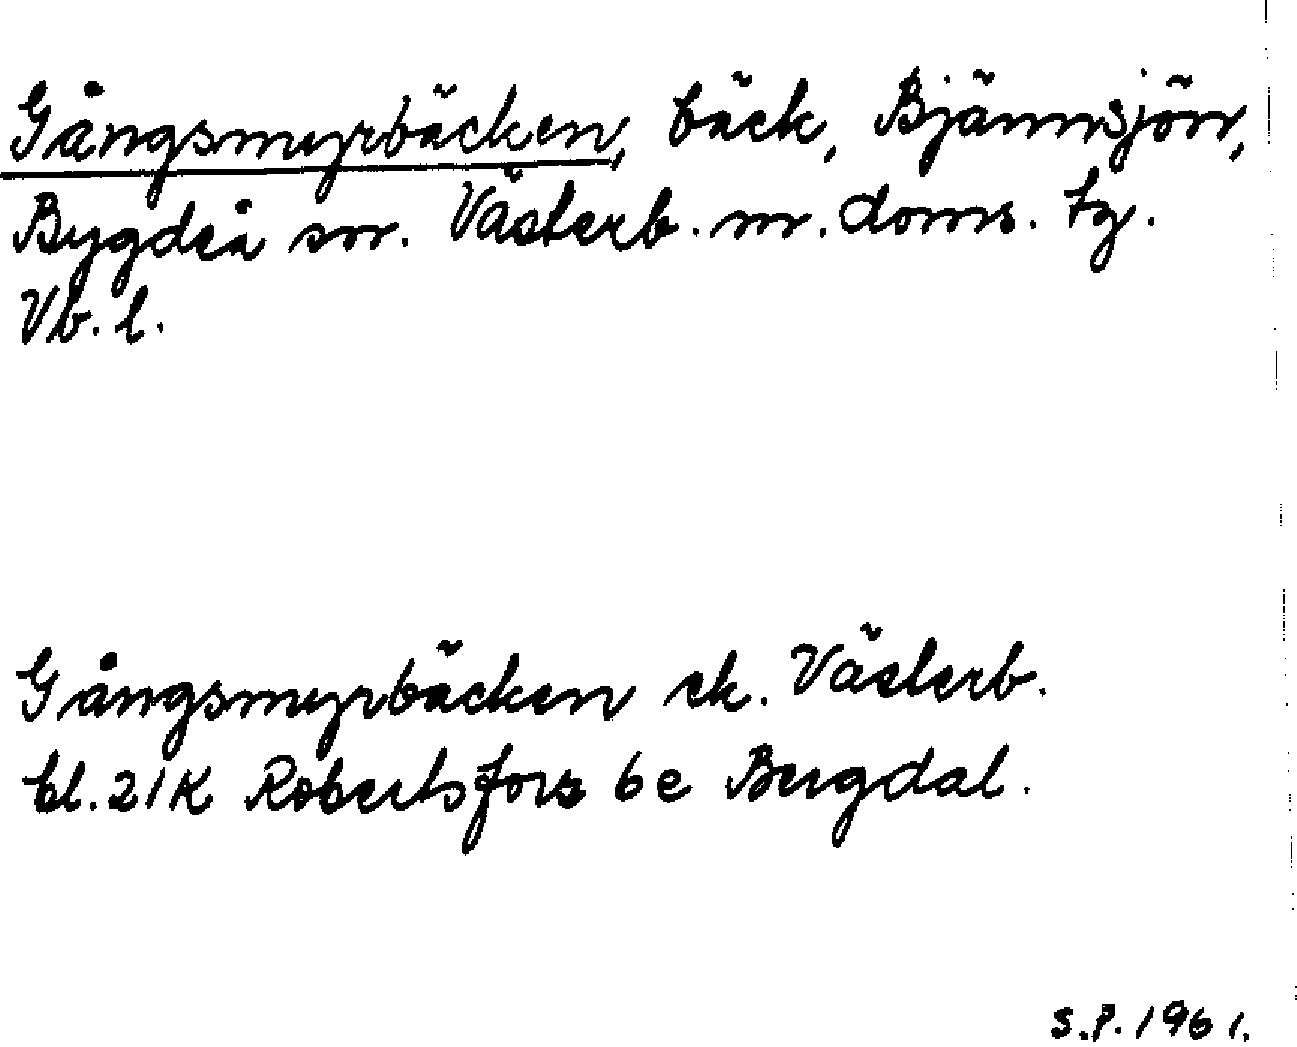 Gångsmyrbäcken, bäck, Bjännsjön,
Bygdeå sn. Västerb. m. doms. tg.
Vb. l.
Gångsmyrbäcken ek. Västerb.
bl. 21K Robertsfors 6e Bergdal.
S.P. 1961.